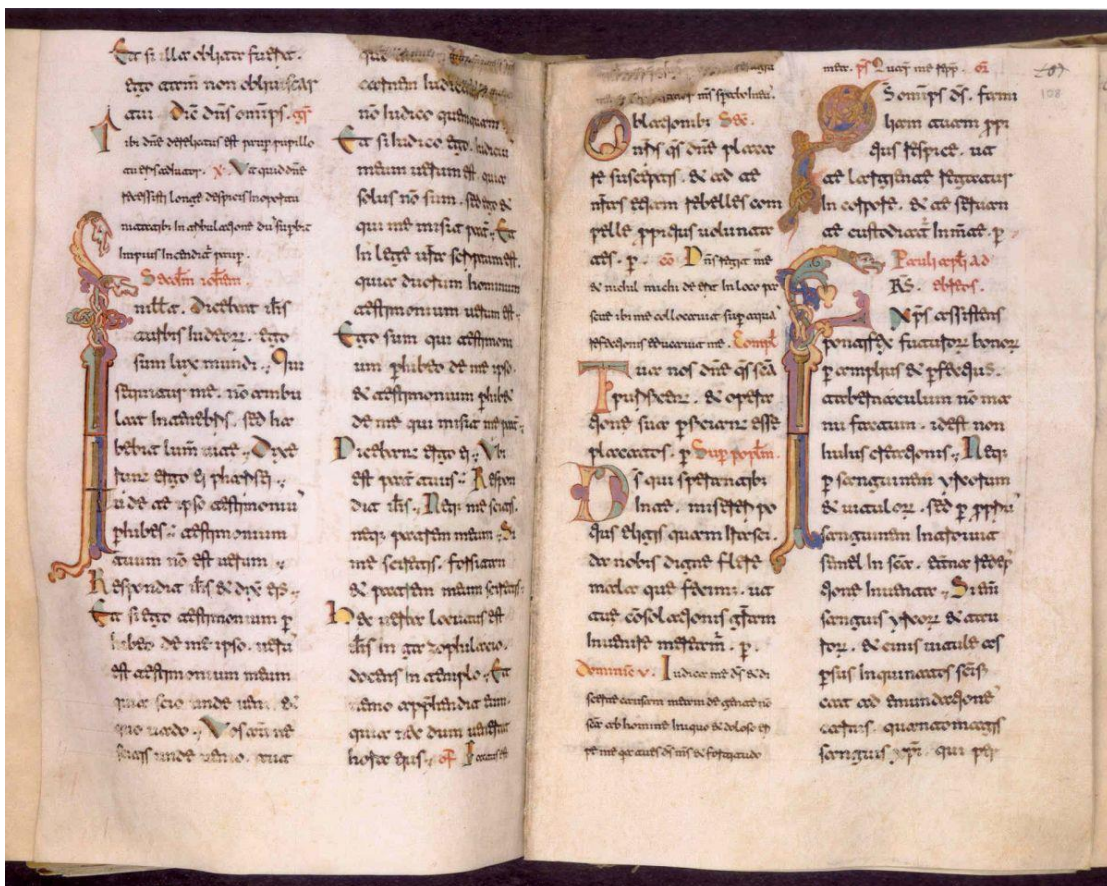 Et si illa oblita fuerit.
ego tam̄ non obliuiscar
tui Dic̄ dn̄s omnip̄s. gr̄
ibi dn̄e derelictus est paup pupillo
tu eris adiutor. V̄t quid dn̄e
recessisti longe despicis in oportu
nitatibȝ in tribulatione du supbit
impius incendit̄ paup.
Sec̄dm ioh̄em.
In illa. Dicebat ih̄s
turbis iudeorȝ. Ego
sum lux mundi. Qui
sequitur me. nō ambu
lat in tenebris. sed ha
bebit lum̄ uite. Dixe
runt ergo ei pharisei.
Tu de te ipso testimoniū
phibes. testimonium
tuum nō est uerum.
Respondit ih̄s & dix̄ eis.
Et si ego testimonium p
hibeo de me ipso. uerū
est testimonium meum
quia scio unde ueni. &
quo uado. Vos aūt ne
scitis unde uenio. aut
carnem iudicatis
nō iudico quemquam
Et si iudico ego. iudiciū
meum uerum est. quia
solus nō sum. sed ego &
qui me misit pat̄. Et
in lege ur̄a scriptum est.
quia duorum hominum
testimonium uerum est.
Ego sum qui testimoni
um phibeo de me ipso.
& testimonium phib&
de me qui misit me pat̄.
Dicebant ergo ei. Vbi
est pat̄ tuus. Respon
dit ih̄s. Neqȝ me scitis.
neqȝ patrem meum. Si
me sciretis. forsitan
& patrem meum sciretis.
Hec uerba locutus est
ih̄s in gazophilacio.
docens in templo. Et
nemo app̄hendit eum.
quia nec dum uenerat
hora eius. of̄
Oblationibȝ Sec̄.
nr̄is qs dn̄e placa
re susceptis. & ad te
nr̄as etiam rebelles com
pelle ppitius uolunta
tes. p. co Dn̄s regit me
& nichil michi deerit in loco pa
scue ibi me collocauit sup aqua
refectionis educauit me. Compl̄
Tua nos dn̄e qs sc̄a
purificent. & opera
tione sua pficiant esse
placatos. p Sup popl̄m.
Ds̄ qui sperantibȝ
In te. misereri po
tius eligis quam irasci.
da nobis digne flere
mala que fecimȝ. ut
tue cōsolationis gr̄am
inuenire meream̄. p.
Dominic̄ v. Iudica me ds̄ & di
scerne causam meam de gente nō
sc̄a ab homine iniquo & doloso eri
pe me qr̄ tu es ds̄ ms̄ & fortitudo
107
108
mea. ps̄
Omnips ds̄. fami
liam tuam ppi
tius respice. ut
te largiente regatur
in corpore. & te seruan
te custodiat̄ in m̄te. p
Pauli apl̄i ad
ebreos.
FRS.
Xp̄s assistens
pontifex futurorȝ bonorȝ
p amplius & pfectius
tabernaculum nō ma
nu factum. id est non
huius creationis. Neqȝ
p sanguinem yrcorum
& uitulorȝ. sed p pprium
sanguinem introiuit
semel in sc̄a. eterna redep
tione inuenta. Si enī
sanguis yrcorȝ & tau
rorȝ. & cinis uitule as
psus inquinatos sc̄ifi
cat ad emundationē
carnis. quanto magis
sanguis xp̄i. qui per